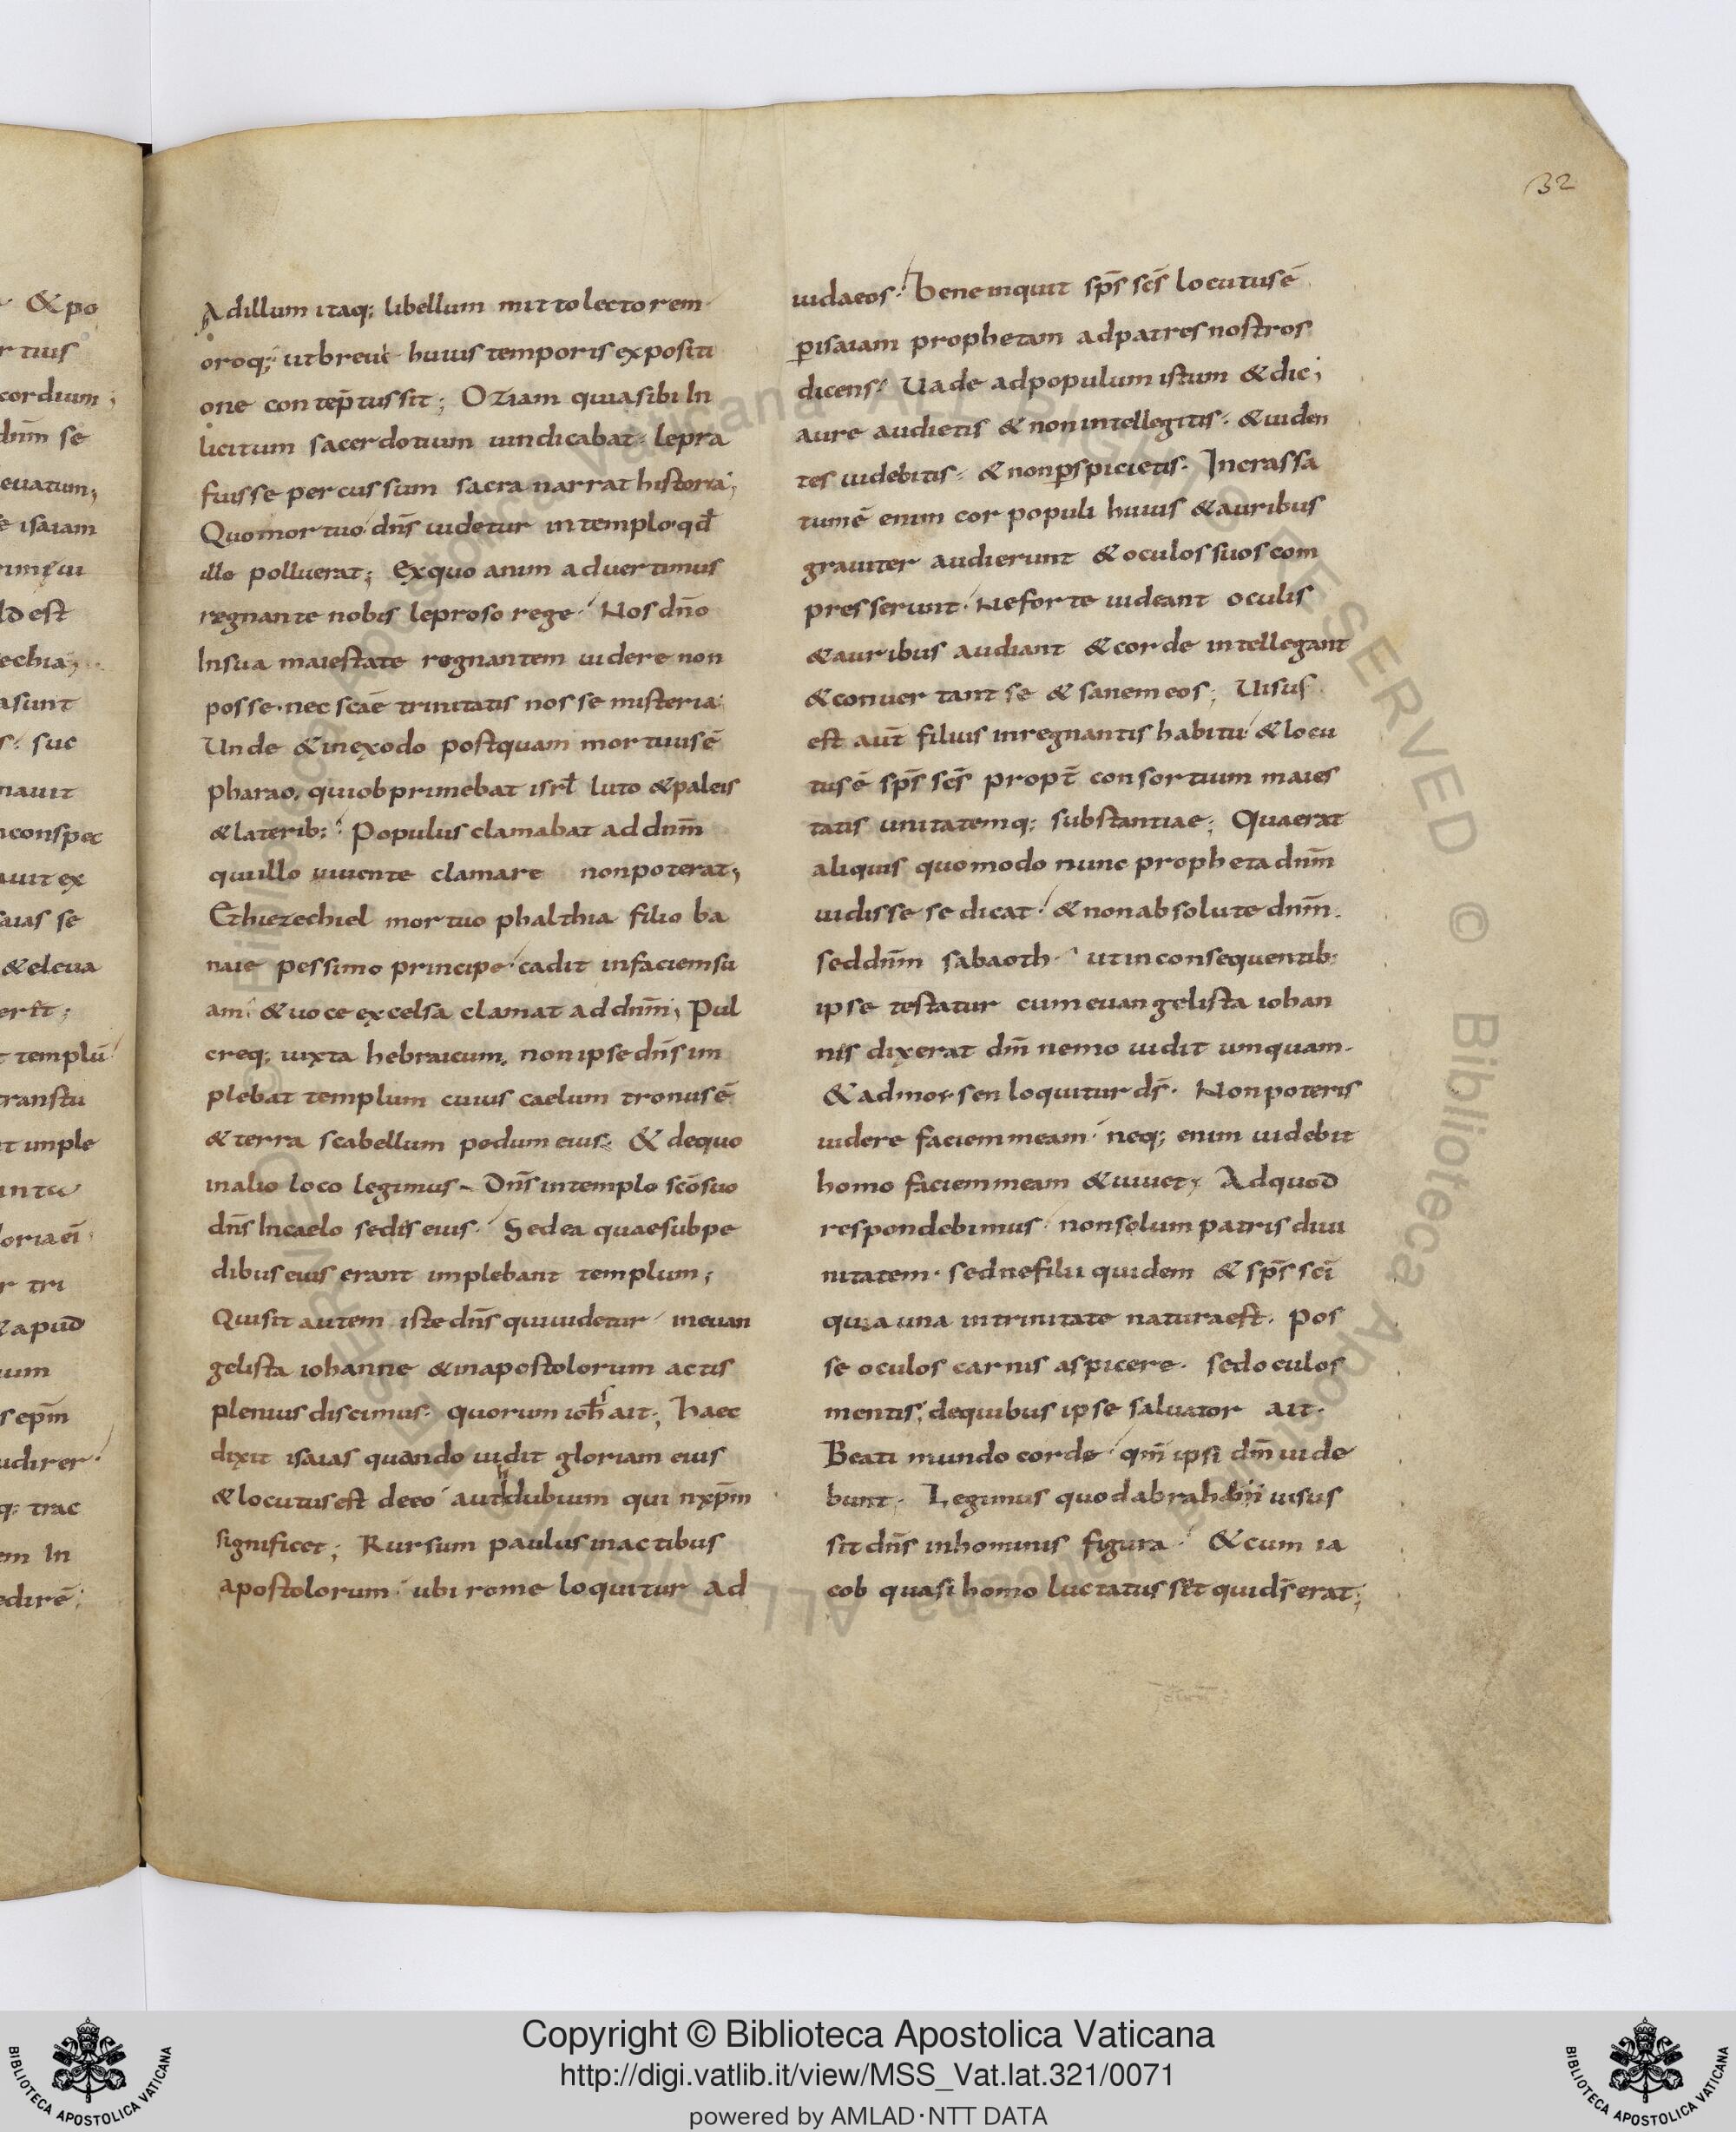 32
& po
r tius
cordium;
dnm̄ se
euatum;
isaiam
est
echia;
asunt
suc
nauit
inconspec
auit ex
saias se
& eleua
t templū
transtu
t imple
oria ei
r tri
& apud
um
s ep̄m
udirer
q; trac
em In
edirē
Adillum itaq; libellum mitto lectorem
oroq; ut breui huius temporis expositi
one contēptus sit; Oziam quia sibi In
licitum sacerdotium uindicabat lepra
fuisse percussum sacra narrat historia;
Quo mortuo dn̄s uidetur in templo qđ
ille polluerat; Ex quo anim aduertimus
regnante nobis leproso rege Nos dn̄o
In sua maiestate regnantem uidere non
posse nec scāe trinitatis nosse misteria
Unde & in exodo postquam mortuus ē
pharao. qui obprimebat isrł luto & paleis
& laterib; Populus clamabat ad dnm̄
qui illo uiuente clamare non poterat;
Et hiezechiel mortuo phalthia filio ba
naie pessimo principe cadit in faciem su
am & uoce excelsa clamat ad dnm̄; Pul
creq; iuxta hebraicum. non ipse dn̄s im
plebat templum cuius caelum tronus ē
& terra scabellum pedum eius & de quo
in alio loco legimus Dn̄s in templo scō suo
dn̄s In caelo sedis eius Sed ea quae sub pe
dibus eius erant implebant templum;
Qui sit autem iste dn̄s qui uidetur in euan
gelista iohanne & in apostolorum actis
plenius discimus quorum ioh̄s ait; haec
dixit isaias quando uidit gloriam eius
& locutus est de eo aut dubium qui n xp̄m
significet; Rursum paulus in actibus
apostolorum ubi rome loquitur ad
iudaeos. bene inquit sp̄s sc̄s locutus ē
p̱ isaiam prophetam ad patres nostros
dicens Uade ad populum istum & dic;
aure audietis & non intellegitis & uiden
tes uidebitis & non p̱spicietis. Incrassa
tum ē enim cor populi huius & auribus
grauiter audierunt & oculos suos com
presserunt Ne forte uideant oculis
& auribus audiant & corde intellegant
& conuertant se & sanem eos; Uisus
est aut̄ filius in regnantis habitu & locu
tus ē sp̄s sc̄s propt̄ consortium maies
tatis unitatemq; substantiae; Quaerat
aliquis quomodo nunc propheta dnm̄
uidisse se dicat & non absolute dnm̄.
sed dnm̄ sabaoth ut in consequentib;
ipse testatur cum euangelista iohan
nis dixerat dm̄ nemo uidit umquam.
& ad mosen loquitur ds̄. Non poteris
uidere faciem meam neq; enim uidebit
homo faciem meam & uiuet; Ad quod
respondebimus non solum patris diui
nitatem. sed ne filii quidem & sp̄s sc̄i
quia una in trinitate natura est. pos
se oculos carnis aspicere. sed oculos
mentis; de quibus ipse saluator ait.
Beati mundo corde qm̄ ipsi dm̄ uide
bunt. Legimus quod abraham uisus
sit dn̄s in hominis figura & cum ia
cob quasi homo luctatus sit qui ds̄ erat;
© Biblioteca Apostolica Vaticana ALL RIGHTS RESERVED
BIBLIOTECA APOSTOLICA VATICANA
Copyright © Biblioteca Apostolica Vaticana
http://digi.vatlib.it/view/MSS_Vat.lat.321/0071
powered by AMLAD·NTT DATA
BIBLIOTECA APOSTOLICA VATICANA